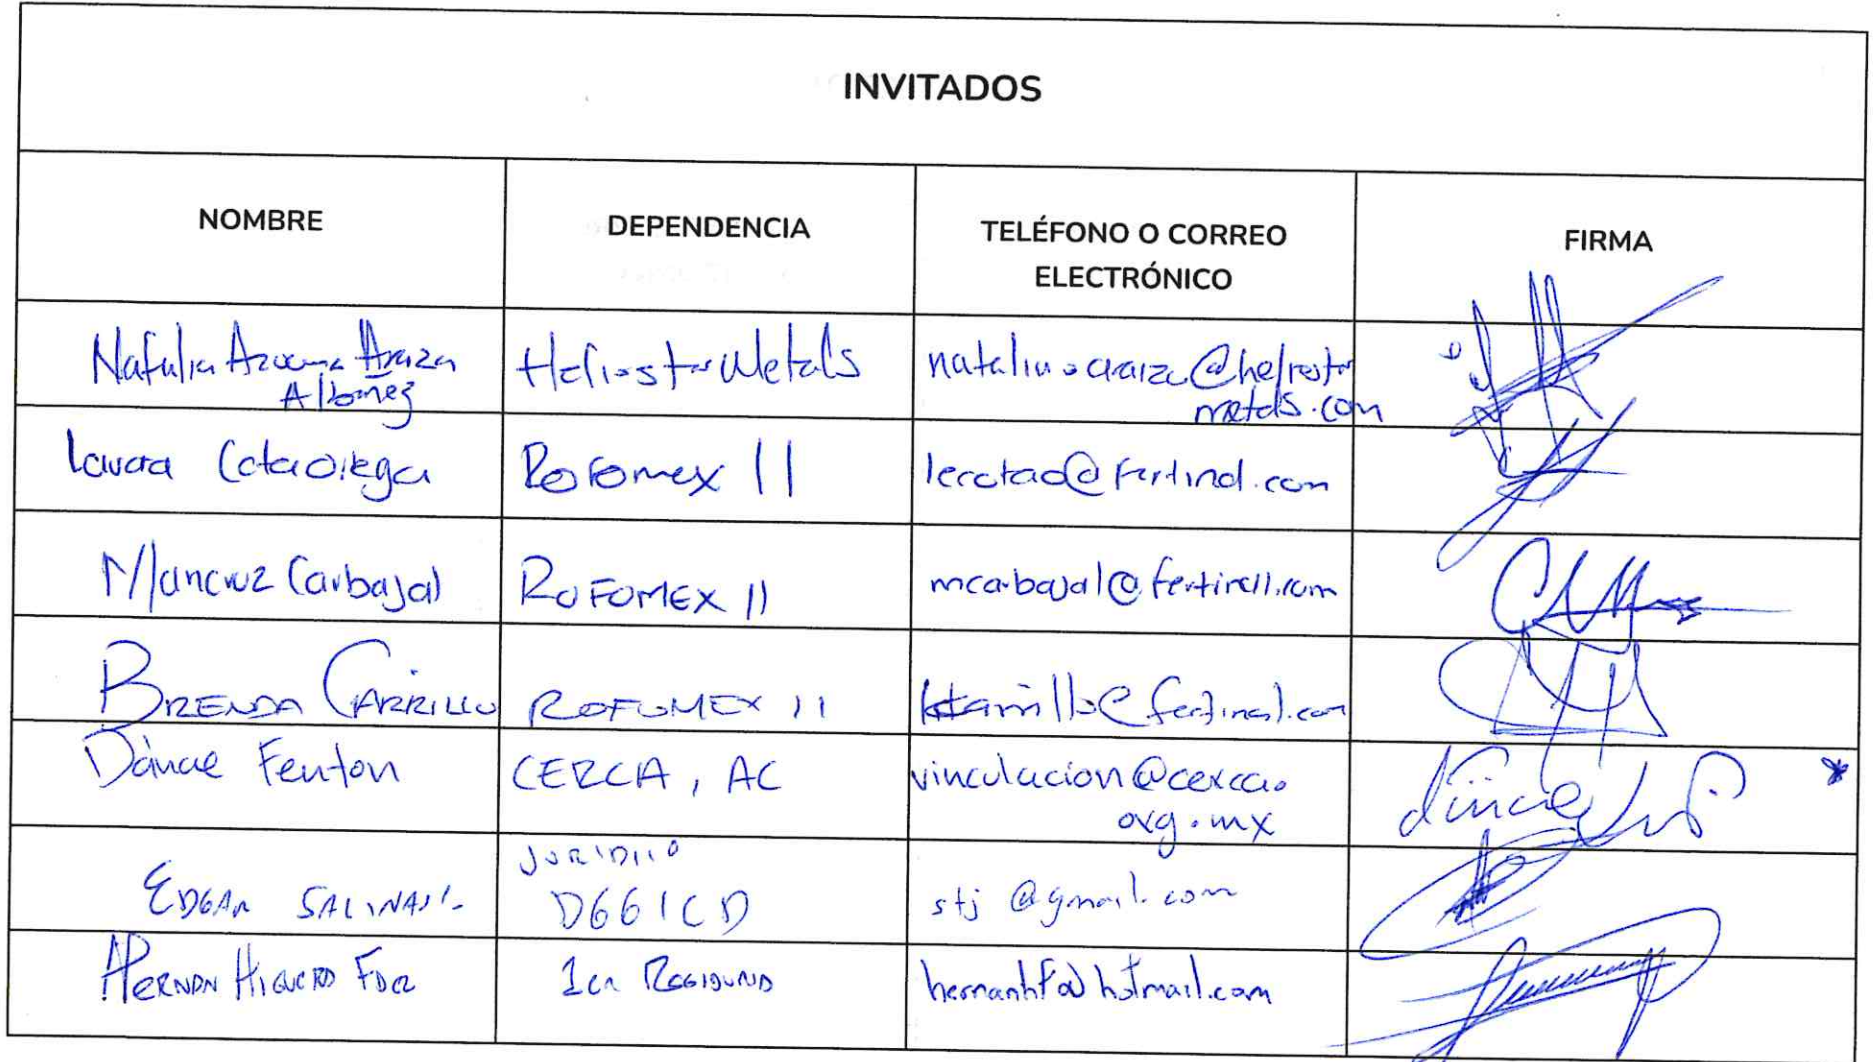 INVITADOS
NOMBRE DEPENDENCIA TELÉFONO O CORREO ELECTRÓNICO FIRMA
Natalia Azucena Araiza Albañez Heliostar Metals natalia.araiza@heliostar metals.com
Laura Cota Ortega Rofomex II lecotao@fertinal.com
Maricruz Carbajal ROFOMEX II mcarbajal@fertinal.com
BRENDA CARRILLO ROFOMEX II @fertinal.com
Dánae Fenton CERCA, AC vinculacion@cerca.org.mx
EDGAR SALINAS JURIDICO DGGICD stj@gmail.com
HERNAN HIGUERA FDEZ 1er REGIDURIA hernanhf@hotmail.com